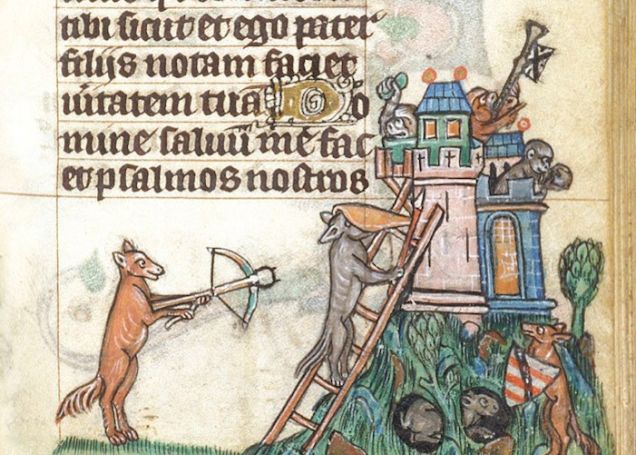 tibi sicut et ego pater
filijs notam faciet
uĩtatem tuã Do
mine saluũ me fac
et psalmos nostros